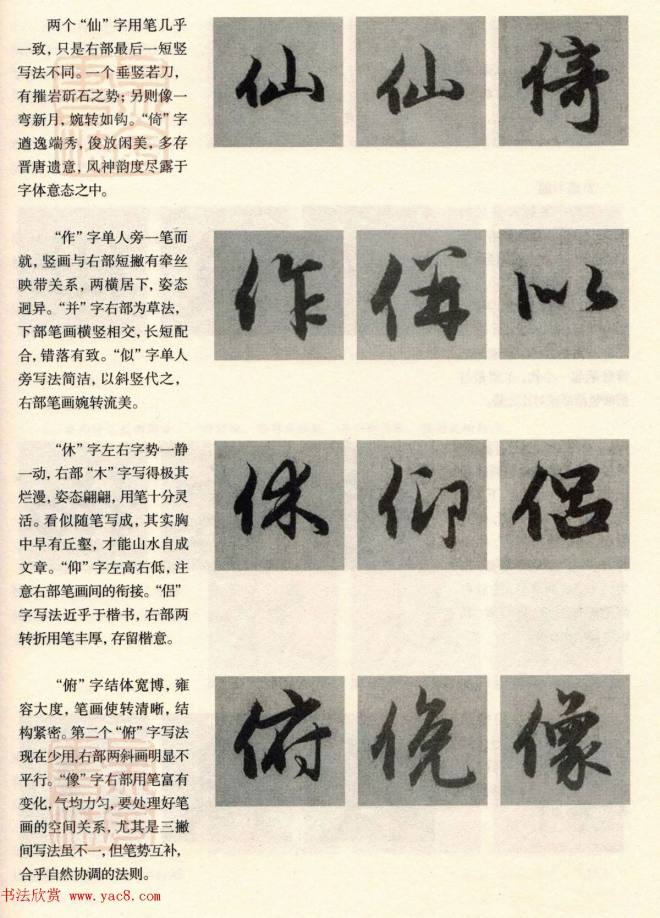 两个“仙”字用笔几乎
一致，只是右部最后一短竖
写法不同。一个垂竖若刀，
有摧岩斫石之势；另则像一
弯新月，婉转如钩。“倚”字
遒逸端秀，俊放闲美，多存
晋唐遗意，风神韵度尽露于
字体意态之中。
仙 仙 倚
“作”字单人旁一笔而
就，竖画与右部短撇有牵丝
映带关系，两横居下，姿态
迥异。“并”字右部为草法，
下部笔画横竖相交，长短配
合，错落有致。“似”字单人
旁写法简洁，以斜竖代之，
右部笔画婉转流美。
作 併 似
“休”字左右字势一静
一动，右部“木”字写得极其
烂漫，姿态翩翩，用笔十分灵
活。看似随笔写成，其实胸
中早有丘壑，才能山水自成
文章。“仰”字左高右低，注
意右部笔画间的衔接。“侣”
字写法近乎于楷书，右部两
转折用笔丰厚，存留楷意。
休 仰 侣
“俯”字结体宽博，雍
容大度，笔画使转清晰，结
构紧密。第二个“俯”字写法
现在少用，右部两斜画明显不
平行。“像”字右部用笔富有
变化，气均力匀，要处理好笔
画的空间关系，尤其是三撇
间写法虽不一，但笔势互补，
合乎自然协调的法则。
俯 俛 像
书法欣赏 www.yac8.com